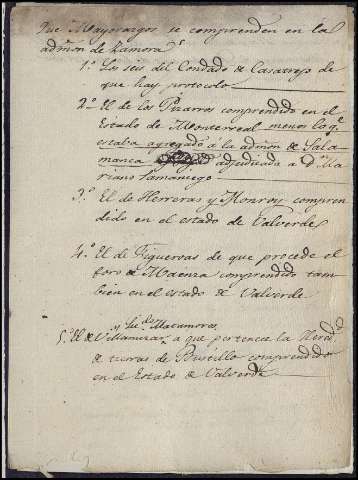 Que Mayorazgos se comprenden en la
admon de Zamora
1.º Los seis del Condado de Casatrejo de
que hay protocolo
2.º El de los Pizarros comprendido en el
Estado de Monterreal menos lo q.e
estaba agregado a la admon de Sala
manca adjudicada a D.n Ma
riano Samaniego
3.º El de Herreras y Monroy compren
dido en el estado de Valverde
4.º El de Figueroas de que procede el
foro de comprendido tam
bien en el estado de Valverde
y de Matamoros
5.º El de Villamizar a que pertenece la Hered.
de tierras de Bustillo comprendido
en el Estado de Valverde